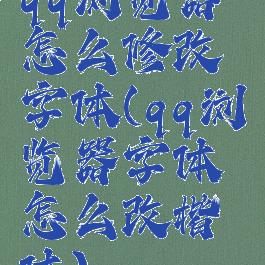 qq浏览器
怎么修改
字体(qq浏
览器字体
怎么改楷
体)